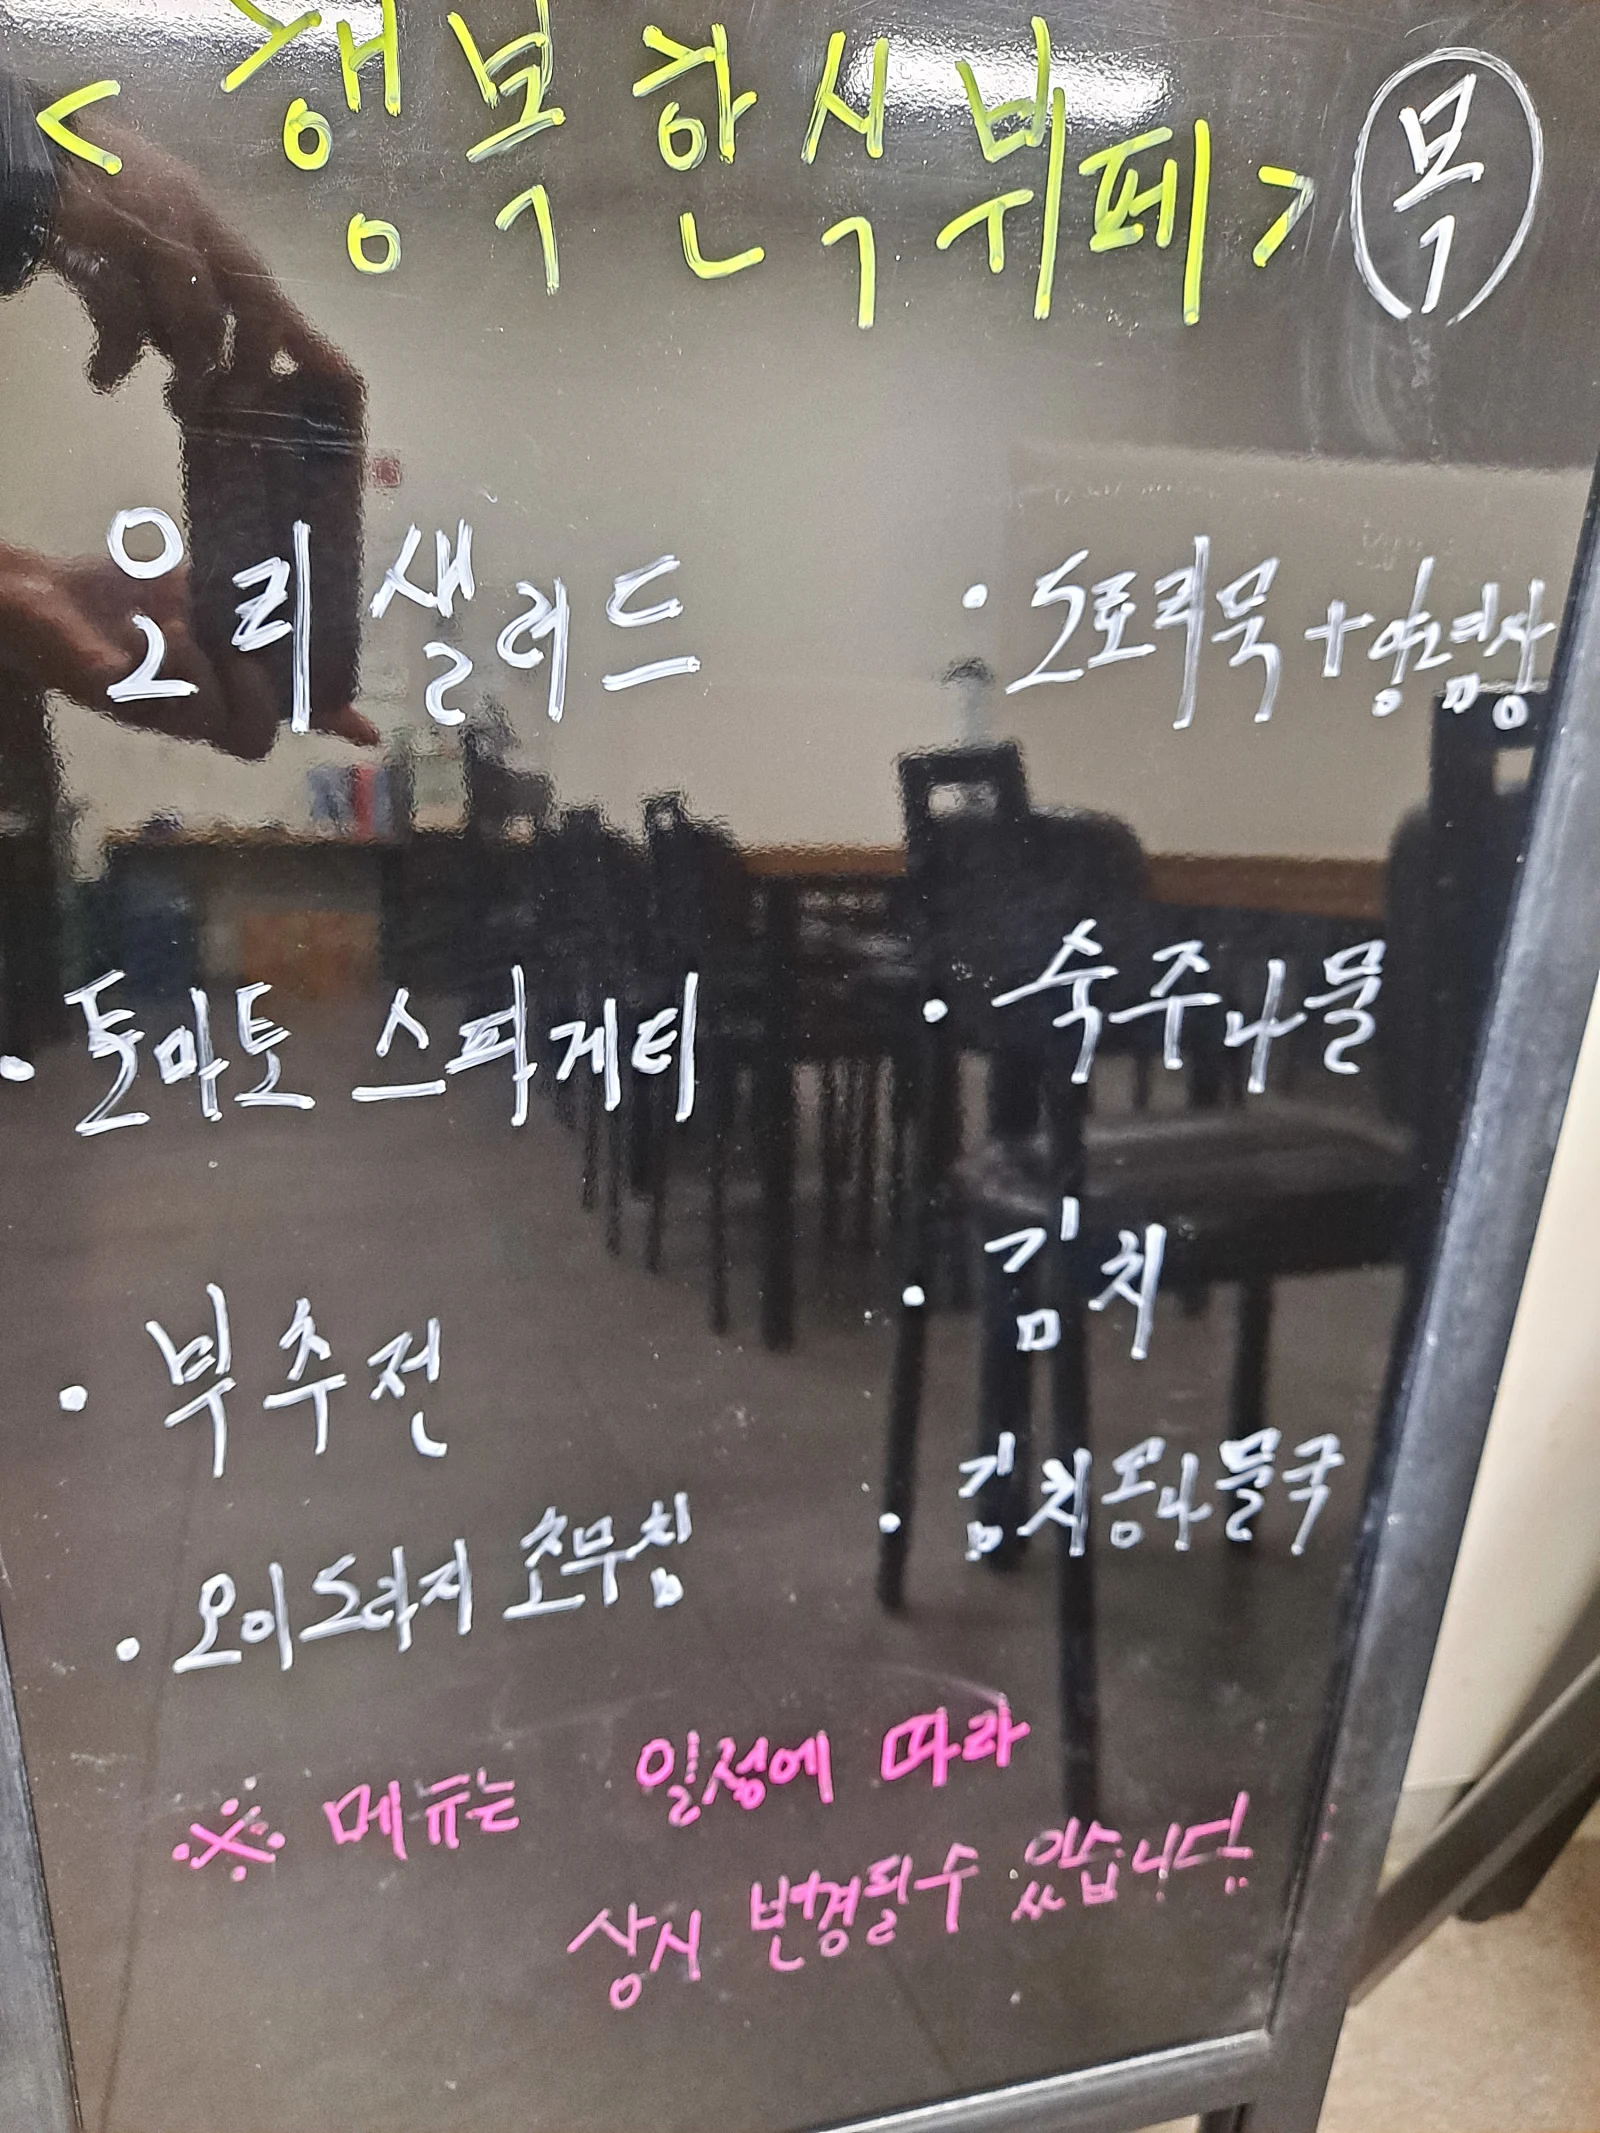 < 행복한식뷔페 > 목
오리샐러드
· 도토리묵 + 양념장
· 토마토 스파게티
· 숙주나물
· 부추전
· 김치
· 오이도라지 초무침
· 김치콩나물국
※ 메뉴는 일정에 따라
상시 변경될수 있습니다!